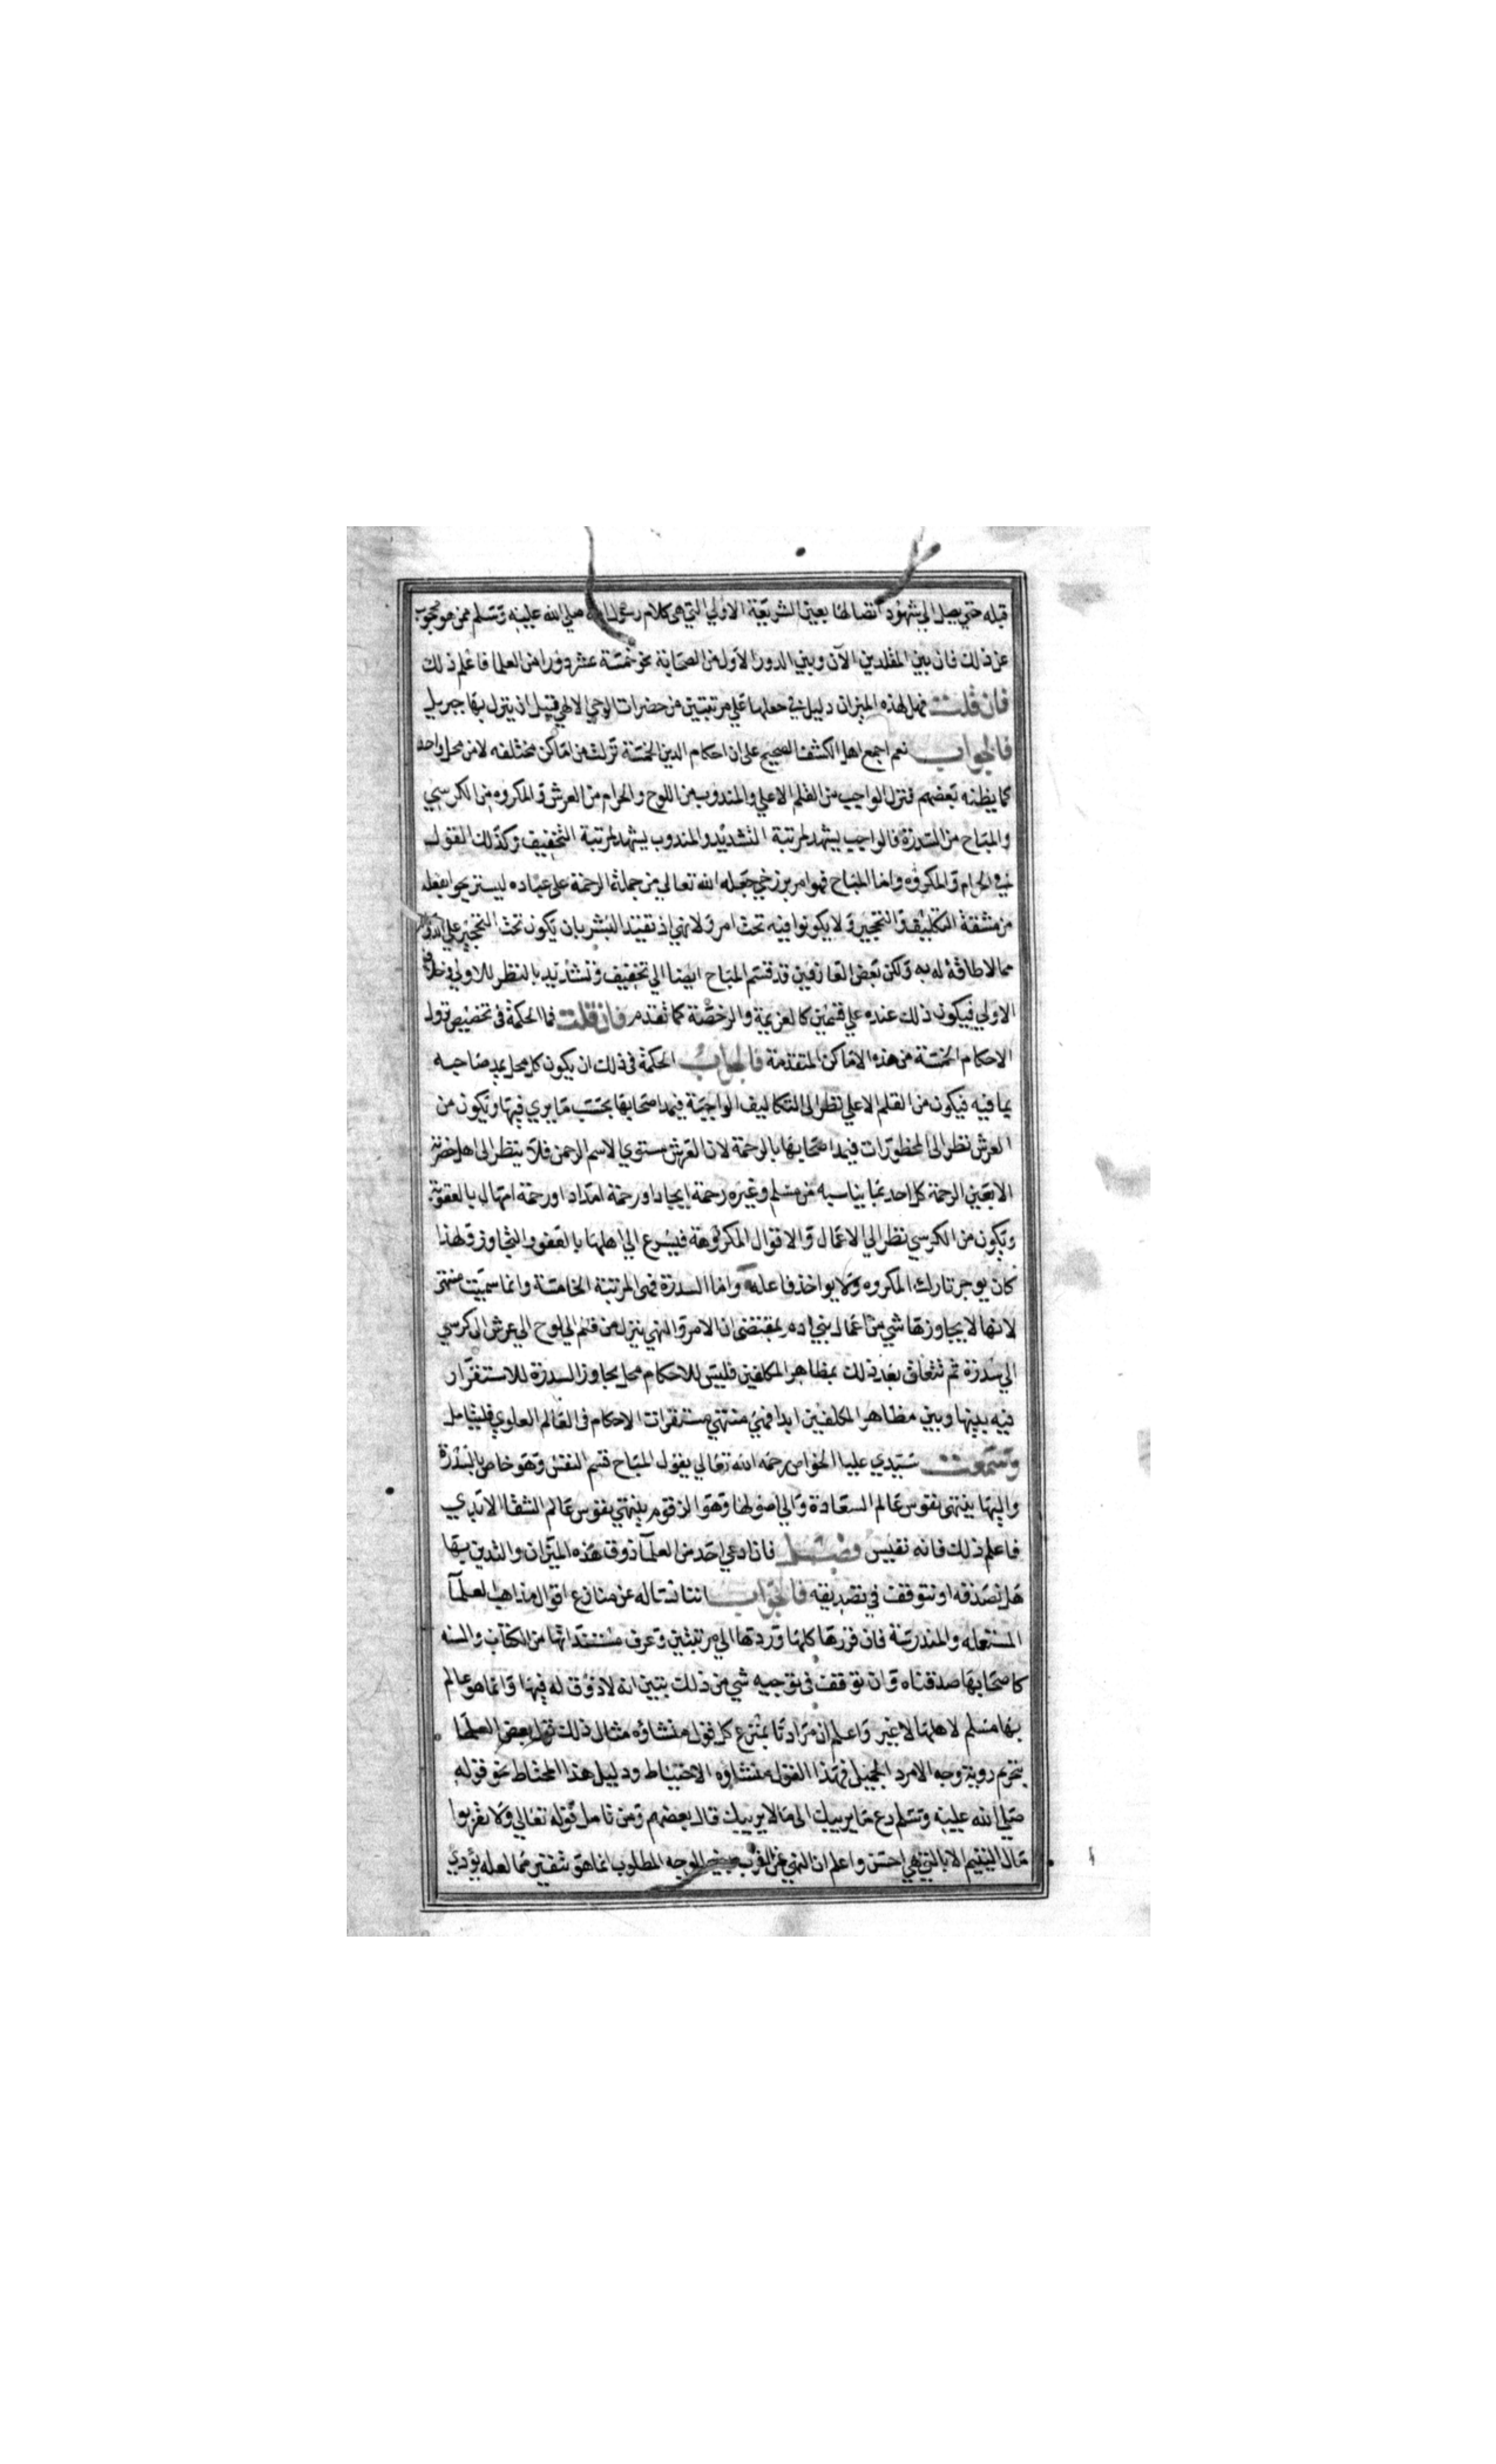 قبله حتي يصل الي شهود اتصالها بعين الشريعة الاولي التي هي كلام رسول الله صلي الله عليه وسلم ممن هو محجوب
عن ذلك فان بين المقلدين الآن وبين الدور الاول من الصحابة نحو خمسة عشر دورا من العلما فاعلم ذلك
فان قلت فهل لهذه الميزان دليل في جعلها علي مرتبتين من حضرات الوحي الالهي قبل ان ينزل بها جبريل
فالجواب نعم اجمع اهل الكشف الصحيح على ان احكام الدين الخمسة نزلت من اماكن مختلفه لا من محل واحد
كما يظنه بعضهم فنزل الواجب من القلم الاعلي والمندوب من اللوح والحرام من العرش والمكروه من الكرسي
والمباح من السدرة فالواجب يشهد لمرتبة التشديد والمندوب يشهد لمرتبة التخفيف وكذلك القول
في الحرام والمكروه واما المباح فهو امر برزخي جعله الله تعالي من جملة الرحمة على عباده ليستريحوا بفعله
من مشقة التكليف والتحجير ولا يكونوا فيه تحت امر ولا نهي اذ تقيد البشر بان يكون تحت التحجير علي الدوام
مما لا طاقة له به ولكن بعض العارفين قد قسم المباح ايضا الي تخفيف وتشديد بالنظر للاولي وخلاف
الاولي فيكون ذلك عنده علي قسمين كالعزيمة والرخصة كما تقدم فان قلت فما الحكمة في تخصيص نزول
الاحكام الخمسة من هذه الاماكن المتقدمة فالجواب الحكمة في ذلك ان يكون كل محل يمد صاحبه
بما فيه فيكون من القلم الاعلي نظر الى التكاليف الواجبة فيمد اصحابها بحسب ما يري فيها ويكون من
العرش نظر الى المحظورات فيمد اصحابها بالرحمة لان العرش مستوي الاسم الرحمن فلا ينظر الى اهل حضرته
الا بعين الرحمة كل احد بما يناسبه من مسلم وغيره رحمة ايجاد او رحمة امداد او رحمة امهال بالعقوبة
ويكون من الكرسي نظر الي الاعمال والاقوال المكروهة فيسرع الي اهلها بالعفو والتجاوز ولهذا
كان يوجر تارك المكروه ولا يواخذ فاعله واما السدرة فهي المرتبة الخامسة وانما سميت منتهى
لانها لا يجاوزها شي من اعمال بني ادم بمقتضى ان الامر والنهي ينزل من قلم الي لوح الي عرش الى كرسي
الي سدرة ثم تتعلق بعد ذلك بمظاهر المكلفين فليس للاحكام محل يجاوز السدرة للاستقرار
فيه بينها وبين مظاهر المكلفين ابدا فهي منتهي مستقرات الاحكام في العالم العلوي فليتامل
وسمعت سيدي عليا الخواص رحمه الله تعالي يقول المباح قسم النفس وهو خاص بالسدرة
واليها ينتهى نفوس عالم السعادة والي اصولها وهو الزقوم ينتهي نفوس عالم الشقا الابدي
فاعلم ذلك فانه نفيس فصل فاذا ادعي احد من العلمآ ذوق هذه الميزان والتدين بها
هل نصدقه او نتوقف في تصديقه فالجواب اننا نساله عن منازع اقوال مذاهب العلمآ
المستعمله والمندرسة فان قررها كلها وردها الي مرتبتين وعرف مستنداتها من الكتاب والسنه
كاصحابها صدقناه وان توقف في توجيه شي من ذلك تبين انه لا ذوق له فيها وانما هو عالم
بها مسلم لاهلها لا غير واعلم ان مرادنا بمنزع كل قول منشاؤه مثال ذلك قول بعض العلما
بتحريم روية وجه الامرد الجميل فهذا القول منشاوه الاحتياط ودليل هذا المحتاط نحو قوله
صلي الله عليه وسلم دع ما يريبك الى ما لا يريبك قال بعضهم ومن تامل قوله تعالي ولا تقربوا
مال اليتيم الا بالتي هي احسن واعلم ان النهي عن القرب للوجه المطلوب انما هو تنفير مما لعله يؤدي